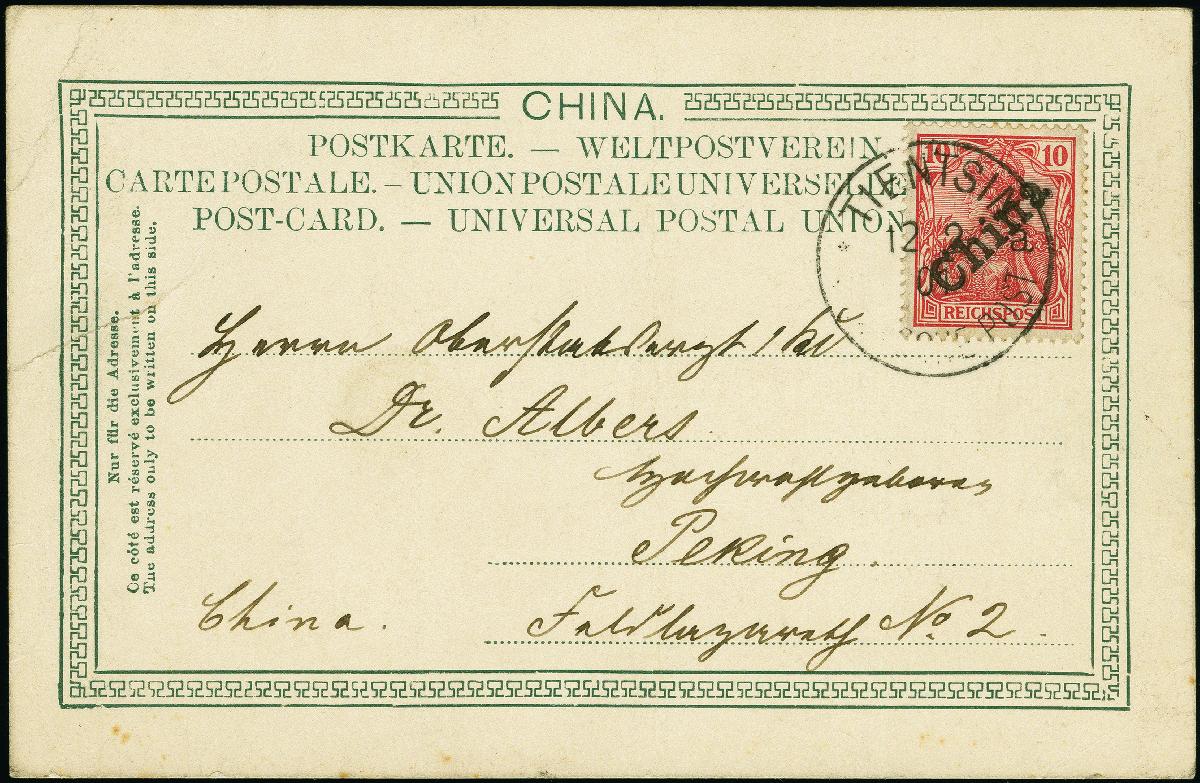 CHINA.
POSTKARTE. — WELTPOSTVEREIN
CARTE POSTALE. — UNION POSTALE UNIVERSELLE
POST-CARD. — UNIVERSAL POSTAL UNION
10 10
China
REICHSPOST
TIENTSIN
12 2
a
POST
Nur für die Adresse.
Ce côté est réservé exclusivement à l'adresse.
The address only to be written on this side.
Herrn Oberstabsarzt
Dr. Albers
Hochwohlgeboren
Peking.
China. Feldlazareth No 2.